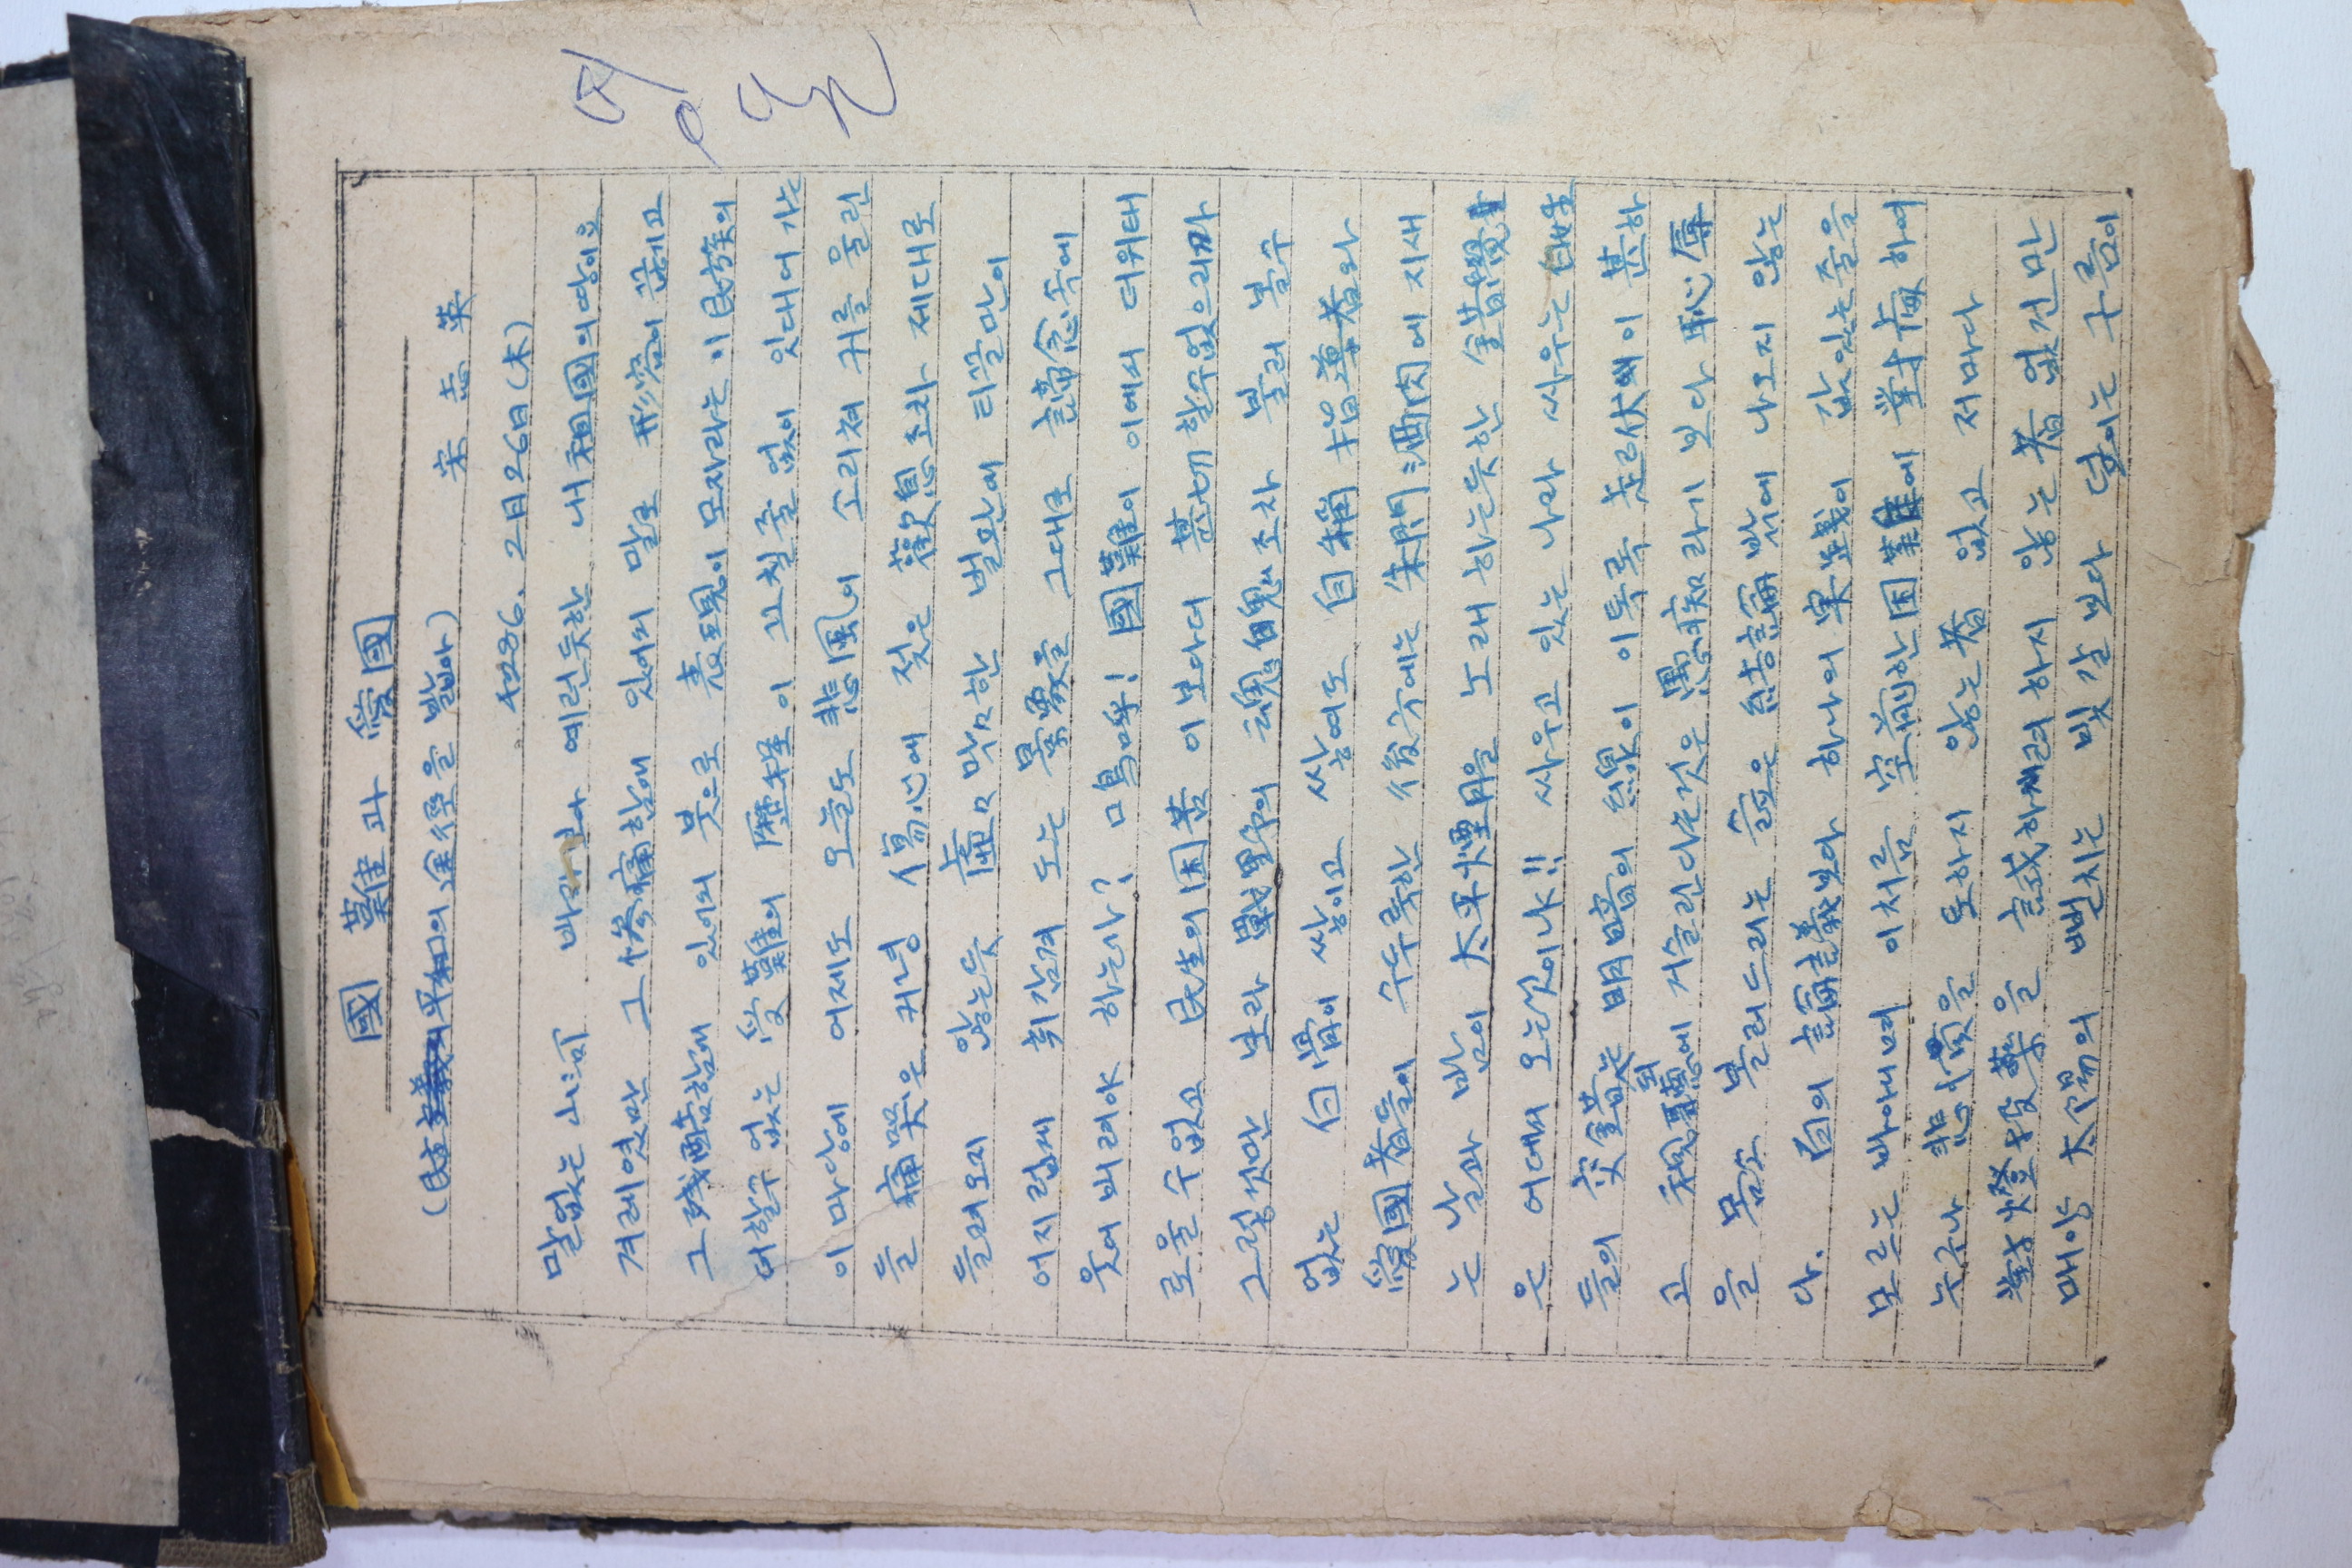 國難과 愛國
(民主主義의 平和의 途徑을 밟아) 宋志英
4286. 2月26日(木)
말없는 山河 바라보아 예런듯한 내 祖國의 땅이요
겨레였만 그 慘痛함에 있어서 말로 形容이 끊기고
그 残酷함에 있어서 붓으로 表現이 모자라는 이 民族의
더할수 없는 受難의 歷程이 끄칠줄 없이 잇대어 가는
이 마당에 어제도 오늘도 悲風이 소리쳐 귀를 울린
들 痛哭은 커녕 傷心에 젖은 歎息조차 제대로
들려오지 않는듯 虛々막々한 벌판에 티끌만이
어지럽게 휘감겨 도는 景象을 그대로 諦念속에
웃어 버려야 하는가? 嗚呼! 國難이 이에서 더위태
로울 수 없고 民生의 困苦 이보다더 甚切할수없으리까
그렇것만 보라 戰野의 魂魄조차 불러 볼수
없는 白骨이 쌓이고 쌓여도 自稱 指導者와
愛國者들이 수두룩한 後方에는 朱門酒肉에 지새
는 날과 밤이 太平煙月을 노래 하는듯한 錯覺
은 어데서 오는것이냐!! 싸우고 있는 나라 싸우는 百姓
들의 交錯되는 明暗의 線이 이토록 起伏이 甚하
고 視聽에 거슬린다는것은 愚痴라기 보다 恥辱
을 몸소 불러드리는 슬픈 結論밖에 나오지 않는
다. 百의 論議보다 하나의 実踐이 값있는줄을
모르는 바아니며 이처름 空前한 困難에 對處하여
누구나 悲憤을 토하지 않는者 없고 저마다
對燈投藥을 試하려 하지 않는者 없건만
매양 太陽의 뻗치는 빛갈보다 덮이는 구름이